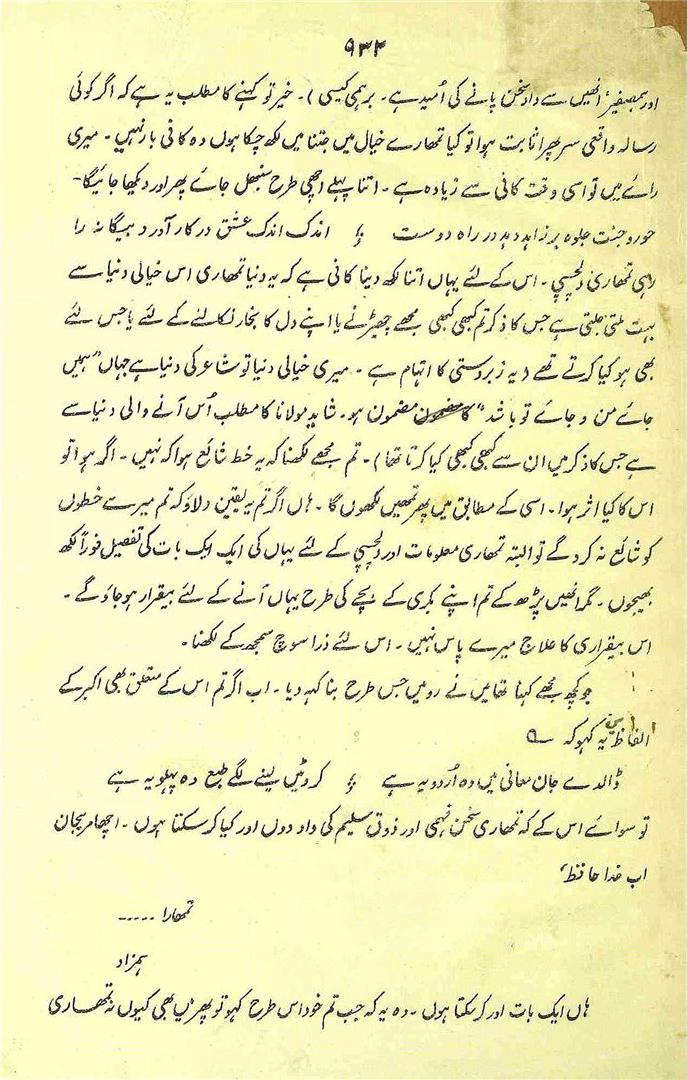 ۹۳۲
اور ہمصفیر، انھیں سے داد سخن پانے کی اُمید ہے۔ برہمی کیسی)۔ خیر تو کہنے کا مطلب یہ ہے کہ اگر کوئی
رسالہ واقعی سر پھرا ثابت ہوا تو کیا تمھارے خیال میں جتنا میں لکھ چکا ہوں وہ کافی بار نہیں۔ میری
رائے میں تو اسی وقت کافی سے زیادہ ہے۔ اتنا پہلے اچھی طرح سنبھل جائے پھر اور دیکھا جائیگا۔
حور و جنت جلوہ بر زاہد دہد در راہ دوست ؛ اندک اندک عشق در کار آورد بیگانہ را
رہی تمھاری دلچسپی۔ اس کے لئے یہاں اتنا لکھ دینا کافی ہے کہ یہ دنیا تمھاری اس خیالی دنیا سے
بہت ملتی جلتی ہے جس کا ذکر تم کبھی کبھی مجھے چھیڑنے یا اپنے دل کا بخار نکالنے کے لئے یا جس لئے
بھی ہو کیا کرتے تھے (یہ زبردستی کا اتہام ہے۔ میری خیالی دنیا تو شاعر کی دنیا ہے جہاں "ہمیں
جائے من و جائے تو باشد" کا مضمون ہو۔ شاید مولانا کا مطلب اُس آنے والی دنیا سے
ہے جس کا ذکر میں ان سے کبھی کبھی کیا کرتا تھا)۔ تم مجھے لکھنا کہ یہ خط شائع ہوا کہ نہیں۔ اگر ہوا تو
اس کا کیا اثر ہوا۔ اسی کے مطابق میں پھر تمھیں لکھوں گا۔ ہاں اگر تم یہ یقین دلاؤ کہ تم میرے خطوں
کو شائع نہ کرو گے تو البتہ تمھاری معلومات اور دلچسپی کے لئے یہاں کی ایک ایک بات کی تفصیل فوراً لکھ
بھیجوں۔ مگر انھیں پڑھ کے تم اپنے بکری کے بچے کی طرح یہاں آنے کے لئے بیقرار ہو جاؤ گے۔
اس بیقراری کا علاج میرے پاس نہیں۔ اس لئے ذرا سوچ سمجھ کے لکھنا۔
جو کچھ مجھے کہنا تھا میں نے رو میں جس طرح بنا کہہ دیا۔ اب اگر تم اس کے متعلق بھی اکبر کے
الفاظ میں یہ کہو کہ ؎
ڈالدے جان معانی میں وہ اُردو یہ ہے ؛ کروٹیں لینے لگے طبع وہ پہلو یہ ہے
تو سوائے اس کے کہ تمھاری سخن فہمی اور ذوق سلیم کی داد دوں اور کیا کر سکتا ہوں۔ اچھا مریجان
اب خدا حافظ،
تمھارا .....
ہمزاد
ہاں ایک بات اور کر سکتا ہوں۔ وہ یہ کہ جب تم خود اس طرح کہو تو پھر میں بھی کیوں نہ تمھاری